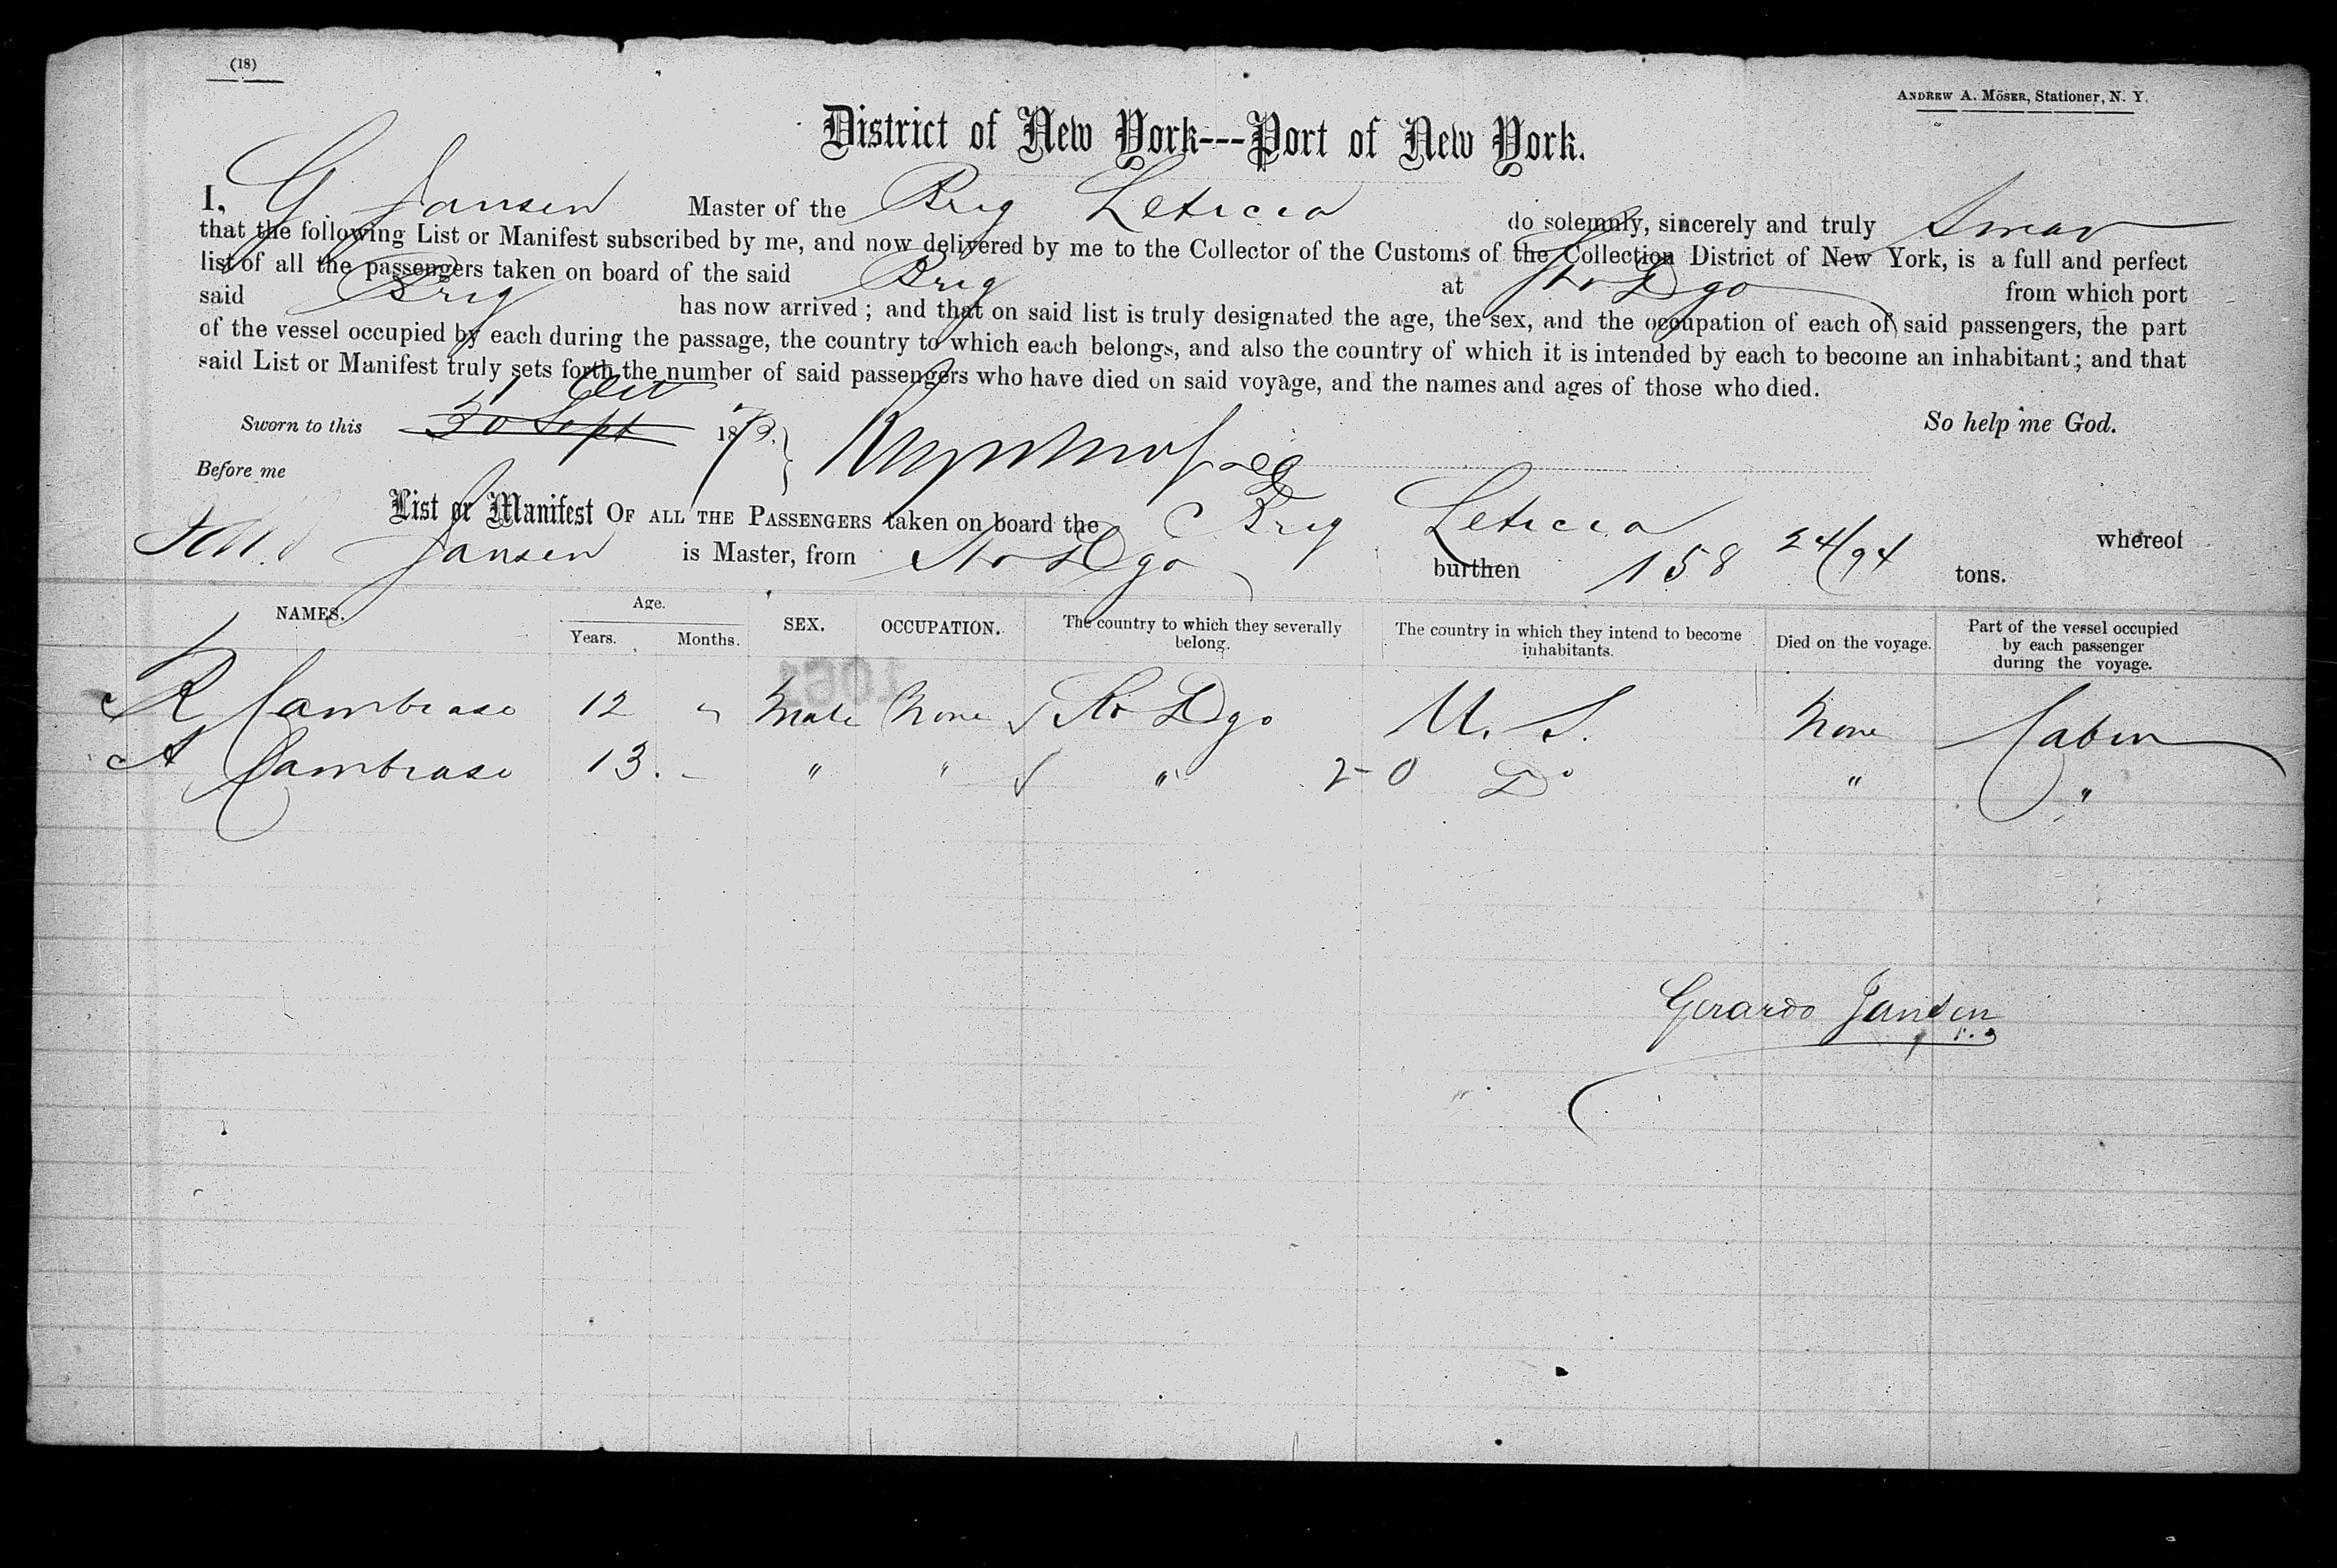 (18)
ANDREW A. MÖSER, Stationer, N. Y.
District of New York---Port of New York.
I, G Jansen Master of the Brig Leticia do solemnly, sincerely and truly Swear
that the following List or Manifest subscribed by me, and now delivered by me to the Collector of the Customs of the Collection District of New York, is a full and perfect
list of all the passengers taken on board of the said Brig at Sto Dgo from which port
said Brig has now arrived; and that on said list is truly designated the age, the sex, and the occupation of each of said passengers, the part
of the vessel occupied by each during the passage, the country to which each belongs, and also the country of which it is intended by each to become an inhabitant; and that
said List or Manifest truly sets forth the number of said passengers who have died on said voyage, and the names and ages of those who died.
1 Oct
Sworn to this 30 Sept 1879. So help me God.
Before me
List or Manifest OF ALL THE PASSENGERS taken on board the Brig Leticia whereof
Jansen is Master, from Sto Dgo burthen 158 24/94 tons.
NAMES. Age. Years. Months. SEX. OCCUPATION. The country to which they severally belong. The country in which they intend to become inhabitants. Died on the voyage. Part of the vessel occupied by each passenger during the voyage.
R Cambiaso 12 " Male None Sto Dgo U. S. None Cabin
A Cambiaso 13. - " " " 2-0 Do " "
Gerardo Jansen